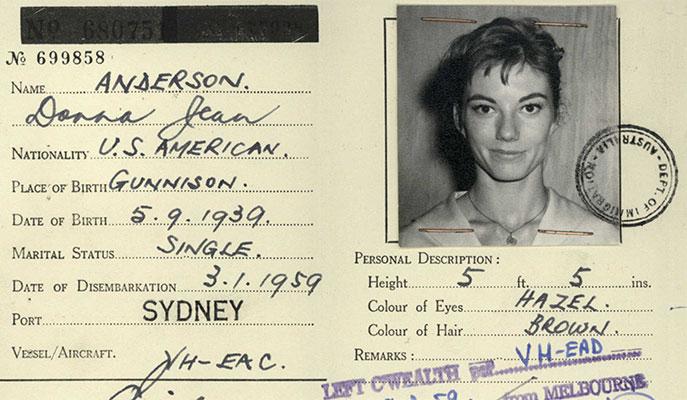 No 680751
No 699858
NAME ANDERSON.
Donna Jean
NATIONALITY U.S. AMERICAN.
PLACE OF BIRTH GUNNISON.
DATE OF BIRTH 5.9.1939.
MARITAL STATUS SINGLE.
DATE OF DISEMBARKATION 3.1.1959
PORT SYDNEY
VESSEL/AIRCRAFT. VH-EAC.
DEPT. OF IMMIGRATION AUSTRALIA
PERSONAL DESCRIPTION:
Height 5 ft. 5 ins.
Colour of Eyes HAZEL.
Colour of Hair BROWN.
REMARKS: VH-EAD
LEFT C'WEALTH PER
FOR MELBOURNE
59